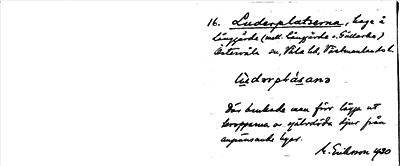 16. Luderplatserna, hage å
Långgärde (mell. Långgärde o. Gudarbo)
Östervåla sn, Våla hd, Västmanlands l.
lüderplásana
Där brukade man förr lägga ut
kropparna av självdöda djur från
angränsande byar.
K. Eriksson 1930